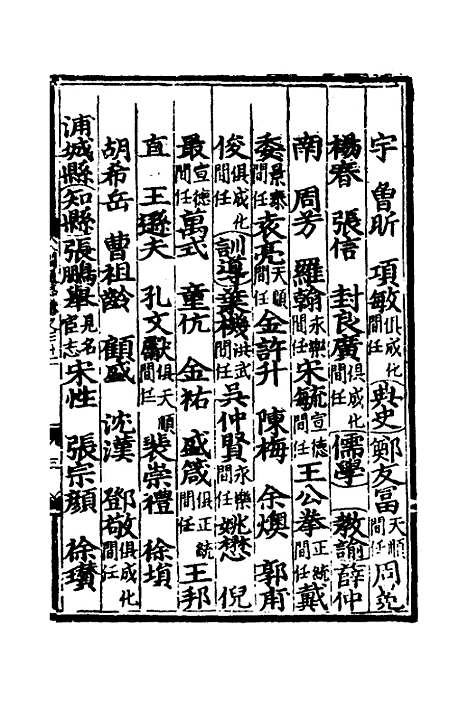 宇　魯昕　項敏俱成化間任典史鄭友冨天順間任周
楊春　張信　封良廣俱成化間任儒學教諭薛仲
南　周芳　羅翰永樂間任宋毓宣德間任王公拳正統間任戴
委景泰間任袁亮天順間任金許升　陳梅　余燠　郭甫
俊俱成化間任訓導葉機洪武間任吳仲賢永樂間任姚懋　倪
最宣德間任萬弍　童伉　金祐　盛箴俱正統間任王邦
直　王遜夫　孔文獻俱天順間任裴崇禮　徐塤
胡希岳　曹祖齡　顧盛　沈漢　鄧敬俱成化間任
浦城縣知縣張鵬舉見名宦志宋性　張宗顔　徐瓚